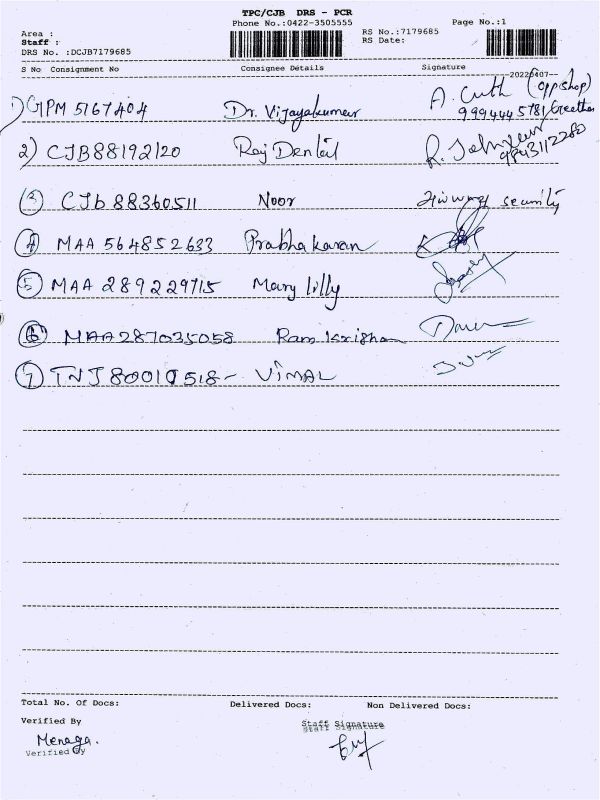 TPC/CJB DRS - PCR
Phone No.:0422-3505555 Page No.:1
Area : RS No.:7179685
Staff : RS Date:
DRS No. :DCJB7179685
S No Consignment No Consignee Details Signature
20220407
1) GPM 5167404 Dr. Vijayakumar A. Cuth (opp shop)
9994445781
2) CJB88192120 Raj Dental R.
9843112280
3 CJb 88360511 Noor security
4 MAA 564852633 Prabha karan
5 MAA 289229715 Mary lilly
6 MAA287035058 Ram Krishan
7 TNJ 80010518- ViMAL
Total No. Of Docs: Delivered Docs: Non Delivered Docs:
Verified By Staff Signature
Menaga.
Verified By